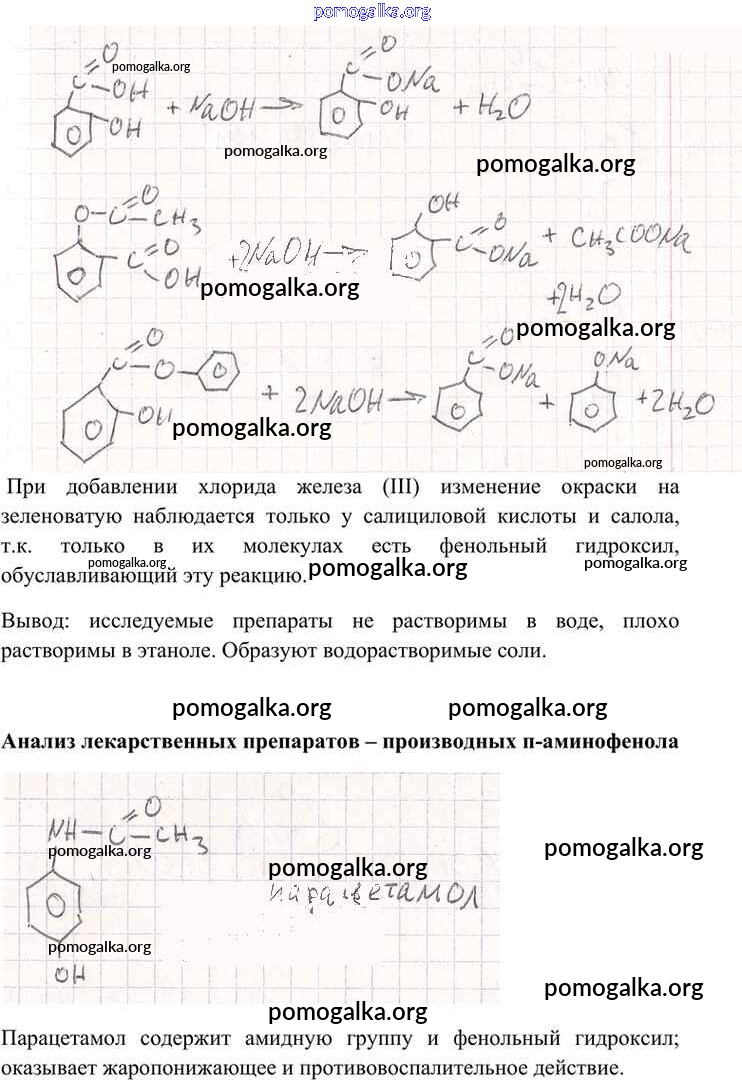 pomogalka.org
pomogalka.org
C O OH OH + NaOH → C O ONa OH + H2O
pomogalka.org
pomogalka.org
O – C O – CH3 C O OH + 2NaOH → OH C O ONa + CH3COONa
pomogalka.org
+ 2H2O
pomogalka.org
C O O – OH + 2NaOH → C O ONa + ONa + 2H2O
pomogalka.org
pomogalka.org
При добавлении хлорида железа (III) изменение окраски на
зеленоватую наблюдается только у салициловой кислоты и салола,
т.к. только в их молекулах есть фенольный гидроксил,
pomogalka.org
pomogalka.org
обуславливающий эту реакцию.
pomogalka.org
Вывод: исследуемые препараты не растворимы в воде, плохо
растворимы в этаноле. Образуют водорастворимые соли.
pomogalka.org
pomogalka.org
Анализ лекарственных препаратов – производных п-аминофенола
NH – C O – CH3
pomogalka.org
pomogalka.org
pomogalka.org
парацетамол
pomogalka.org
OH
pomogalka.org
pomogalka.org
Парацетамол содержит амидную группу и фенольный гидроксил;
оказывает жаропонижающее и противовоспалительное действие.